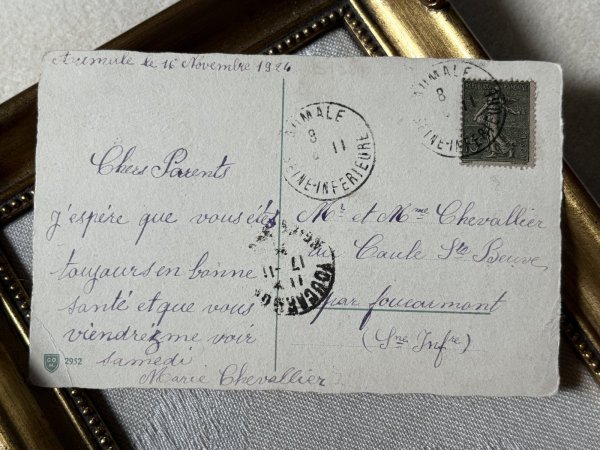 Aumale le 16 Novembre 1924
Chers Parents
j'espére que vous étes
toujours en bonne
santé et que vous
viendrez me voir
samedi
Marie Chevallier
CO
2952
AUMALE
8
11
SEINE-INFERIEURE
AUMALE
8
11
SEINE-INFERIEURE
Mr et Mme Chevallier
au Caule Ste Beuve
par foucarmont
(Sne Infre)
17 -11
11
FOUCARMONT